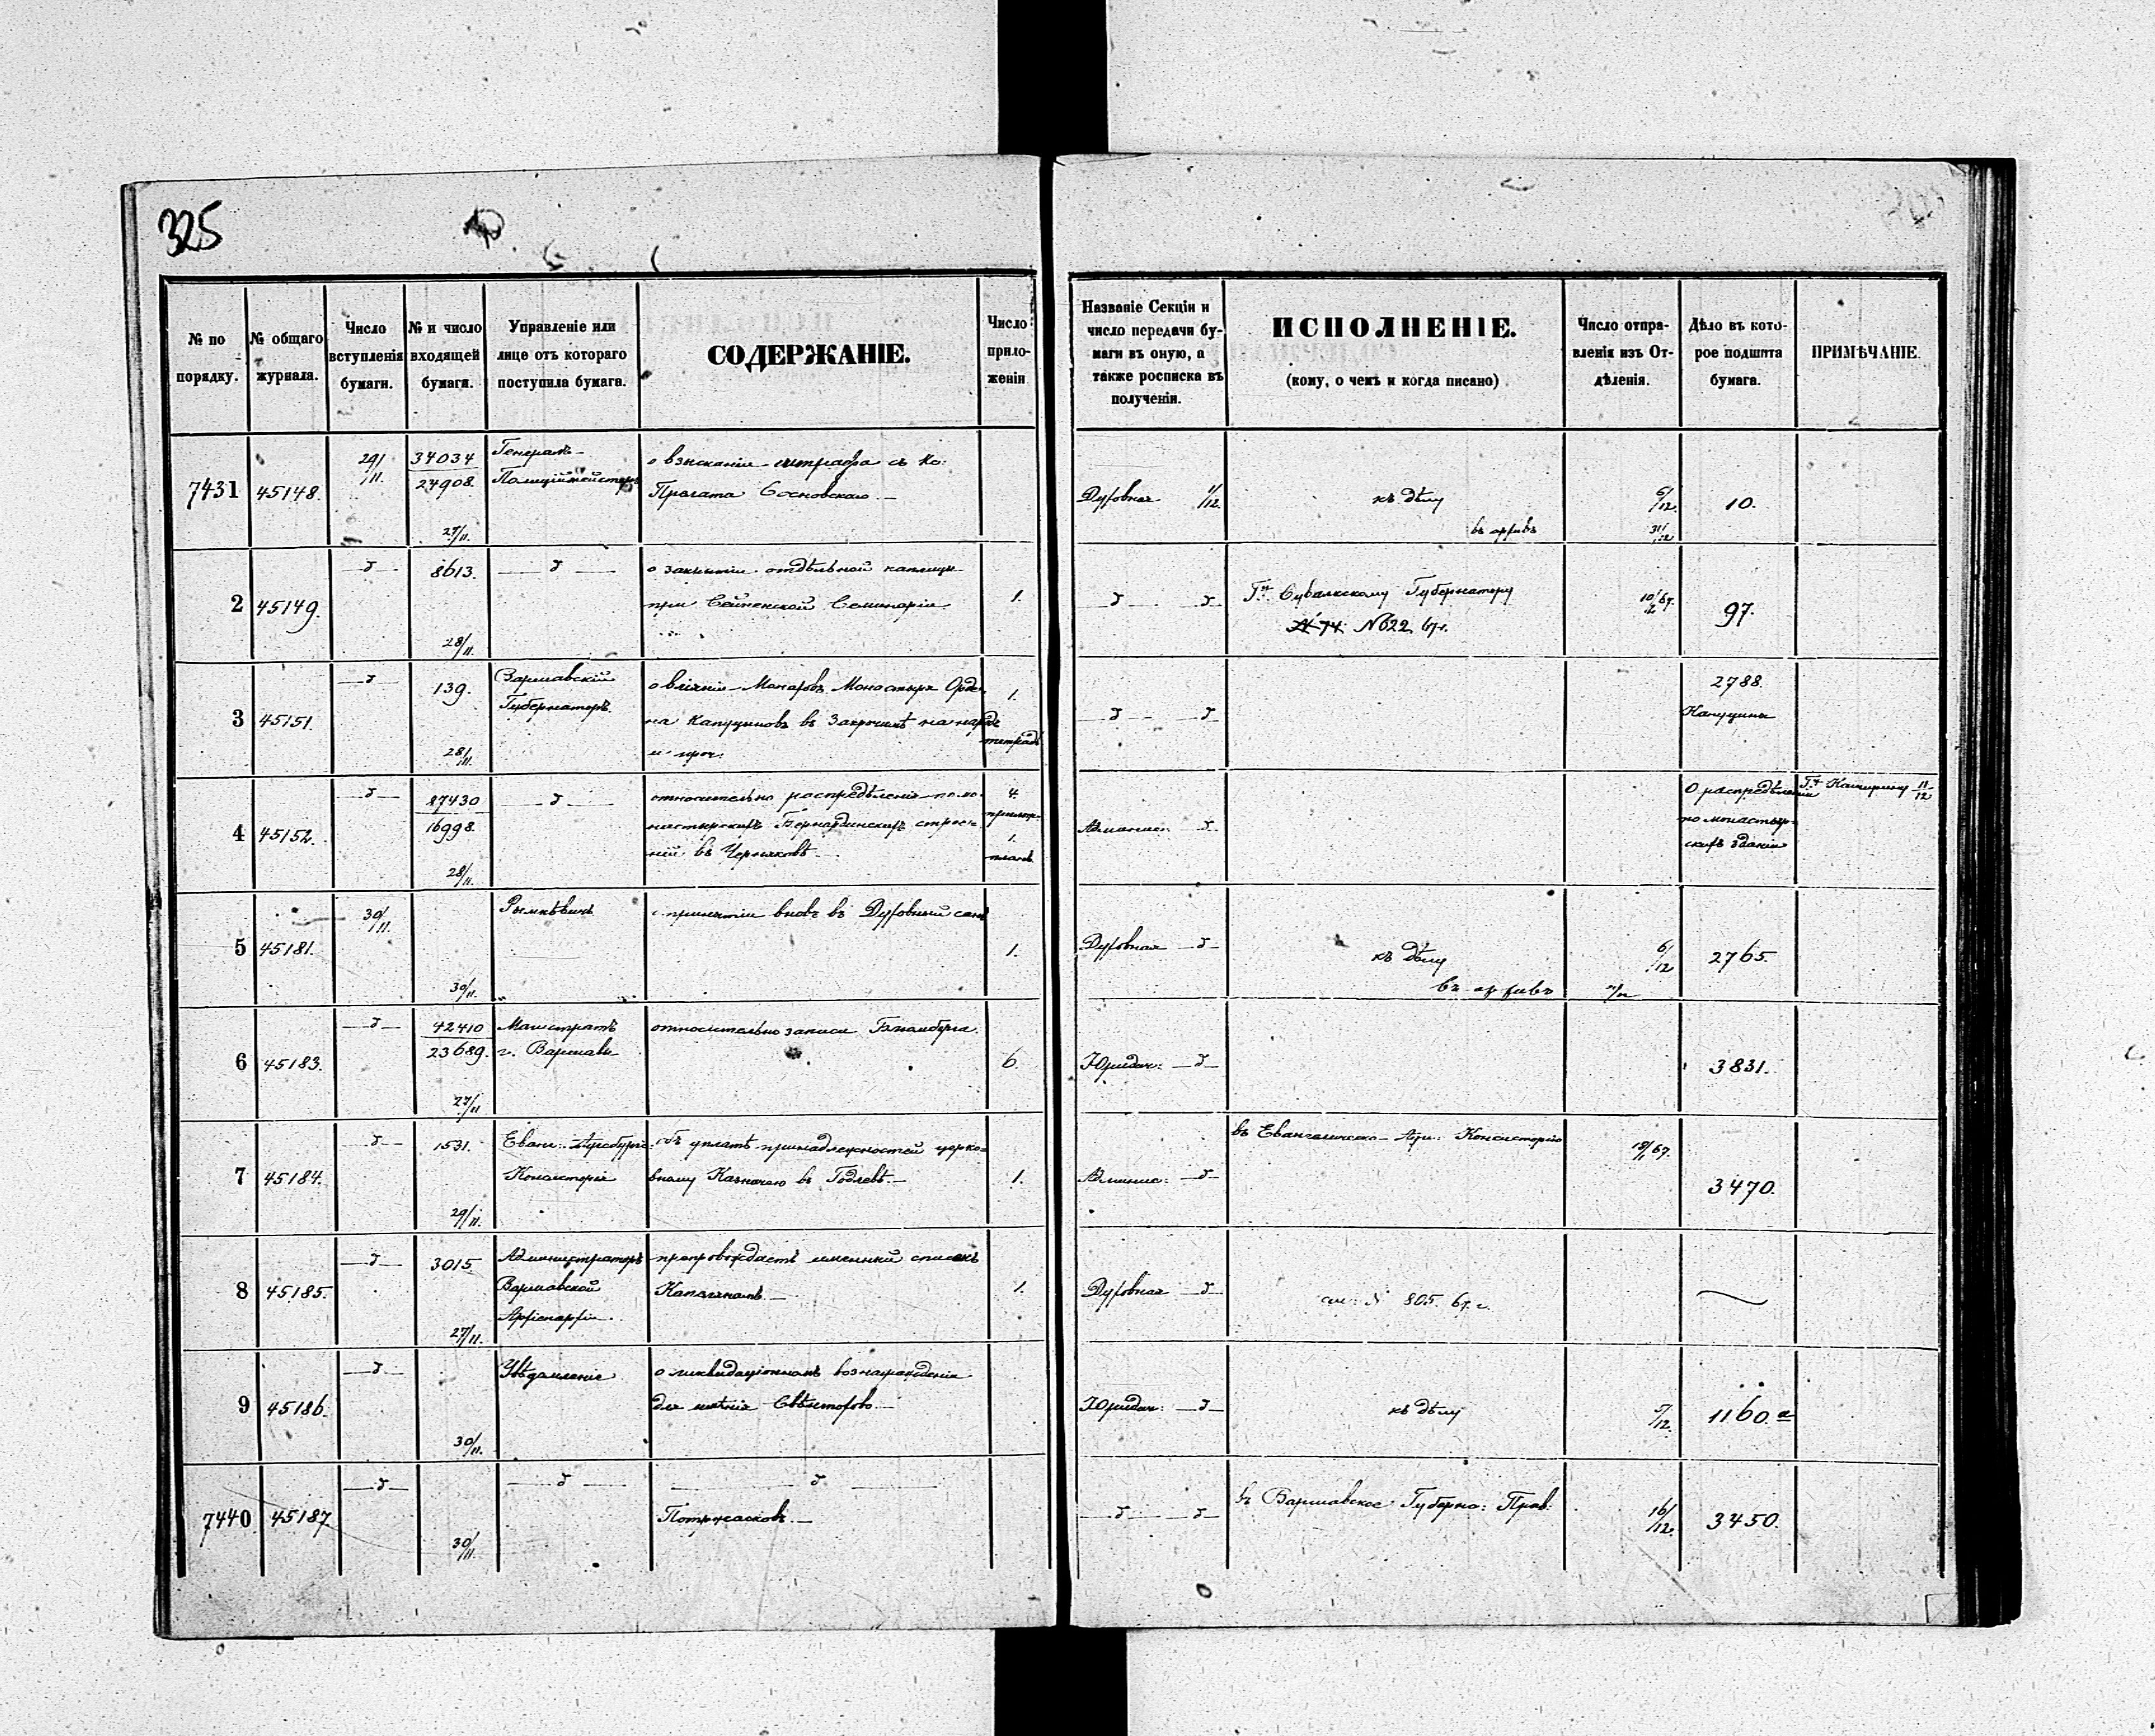 325
№ по порядку.
№ общаго журнала.
Число вступленія бумаги.
№ и число входящей бумаги.
Управленіе или лице отъ котораго поступила бумага.
СОДЕРЖАНІЕ.
Число прило- женій
Названіе Секціи и число передачи бу- маги въ оную, а также росписка въ полученіи.
ИСПОЛНЕНІЕ.
(кому, о чемъ и когда писано)
Число отпра- вленія изъ От- дѣленія.
Дѣло въ кото- рое подшита бумага.
ПРИМѢЧАНІЕ.
7431 45148. 29/11 34034 24908. 27/11.
Генералъ-
Полиціймейстеръ
о взысканіи штрафа съ Кс:
Прелата Сосновскаго.—
Духовная 1/12.
къ дѣлу
въ архивъ
6/12. 31/12
10.
2 45149. 8613. 28/11.
о закрытіи отдѣльной каплицы
при Сейненской Семинаріи
1.
Гну Сувалкскому Губернатору
№ 74 №622. 67г.
97.
3 45151. 139. 28/11.
Варшавскій
Губернаторъ.
о вліяніи Монаховъ Монастыря Орде-
на Капуциновъ въ Закрочимѣ на народъ
и проч.
1.
тетрадь
2788.
Капуцины
4 45152. 87430 16998. 28/11.
относительно распредѣленія по мо-
настырскихъ Бернардинскихъ строе-
ній въ Черняковѣ.
4.
1.
планъ
Админис:
О распредѣленіи
по монастыр-
скихъ зданій
11/12
5 45181. 30/11. 30/11.
о принятіи вновь въ Духовный санъ
1.
Духовная
къ дѣлу
въ архивъ
6/12
2765.
6 45183. 42410 23689. 27/11
Магистратъ
г. Варшавы
относительно записи
6.
Юридич:
3831.
7 45184. 1531. 29/11.
Еванг: Аугсбургс:
Консисторія
объ уплатѣ принадлежностей церко-
вному Казначею въ Годлевѣ.—
1.
Админис:
въ Евангелическо- Ауг: Консисторію
18/1 67.
3470.
8 45185. 3015. 27/11.
Администраторъ
Варшавской
Архіепархіи.
препровождаетъ именной списокъ
1.
Духовная
см: № 805. 67. г.
9 45186. 30/11.
Увѣдомленіе
о ликвидаціонномъ вознагражденіи
для имѣнія
Юридич:
къ дѣлу
5/12.
1160. a
7440 45187 30/11.
въ Варшавское Губерн: Прав:
16/12.
3450.